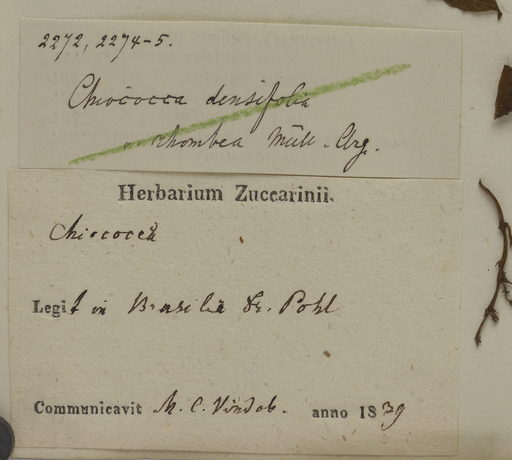 2272, 2274-5.
Chiococca densifolia
v. rhombea Müll. Arg.
Herbarium Zuccarinii.
Chiococca
Legit in Brasilia Dr. Pohl
Communicavit M. C. Vindob. anno 1839